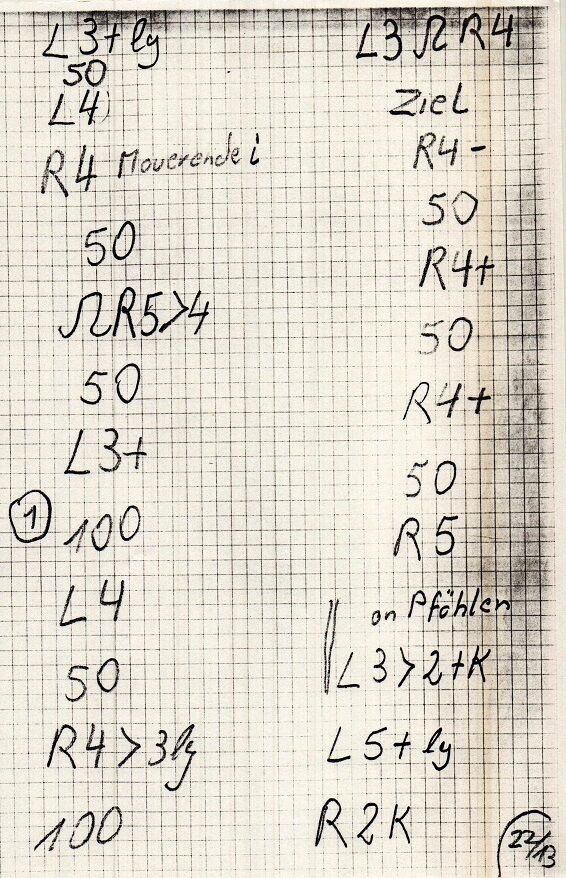 L3+lg
50
L4)
R4 Mauerende i
50
ΩR5>4
50
L3+
① 100
L4
50
R4>3lg
100
L3ΩR4
Ziel
R4-
50
R4+
50
R4+
50
R5
an Pfählen
‖ L3>2+K
L5+lg
R2K
22/13